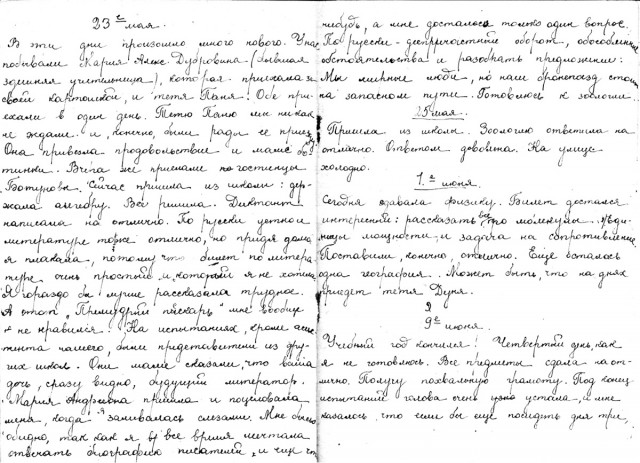 23ᵉ мая.
В эти дни произошло много нового. У нас
побывали Мария Алекс. Дубровина (бывшая
здешняя учительница), которая приехала за
своей картошкой, и тётя Паня. Обе при-
ехали в один день. Тётю Паню мы никак
не ждали и, конечно, были рады её приезду.
Она привезла продовольствие и маме бо-
тинки. Вчера же прислали гостинцы
Сейчас пришла из школы: дер-
жала алгебру. Всё решила. Диктант
написала на отлично. По русски устной
литературе тоже отлично, но придя домой
я плакала, потому что билет по литера-
туре очень простый и который я не хотела.
Я гораздо бы лучше рассказала трудное.
А этот „Премудрый пискарь" мне вообще
не нравился! На испытаниях, кроме асис-
тента нашего, были представители из дру-
гих школ. Они маме сказали, что ваша
дочь, сразу видно, будущий литератор.
Мария Андреевна пришла и поцеловала
меня, когда я заливалась слезами. Мне было
обидно, так как я всё время мечтала
отвечать биографию писателей, и чин
нибудь, а мне досталось только один вопрос.
По русски - деепричастный оборот, обособленные
обстоятельства и разобрать предложение:
Мы мирные люди, но наш бронепоезд стоит
на запасном пути. Готовлюсь к зоологии.
25 мая.
Пришла из школы. Зоологию ответила на
отлично. Ответом довольна. На улице
холодно.
1ᵉ июня.
Сегодня сдавала физику. Билет достался
интересный: рассказать всё про молекулы. Еди-
ницы мощности и задача на сопротивление.
Поставили, конечно, отлично. Ещё осталось
одна география. Может быть, что на днях
приедет тётя Дуня.
9ᵉ июня.
Учебный год кончился! Четвертый день, как
я не готовлюсь. Все предметы сдала на от-
лично. Получу похвальную грамоту. Под конец
испытаний голова очень уж устала, и мне
казалось, что если бы ещё походить дня три,